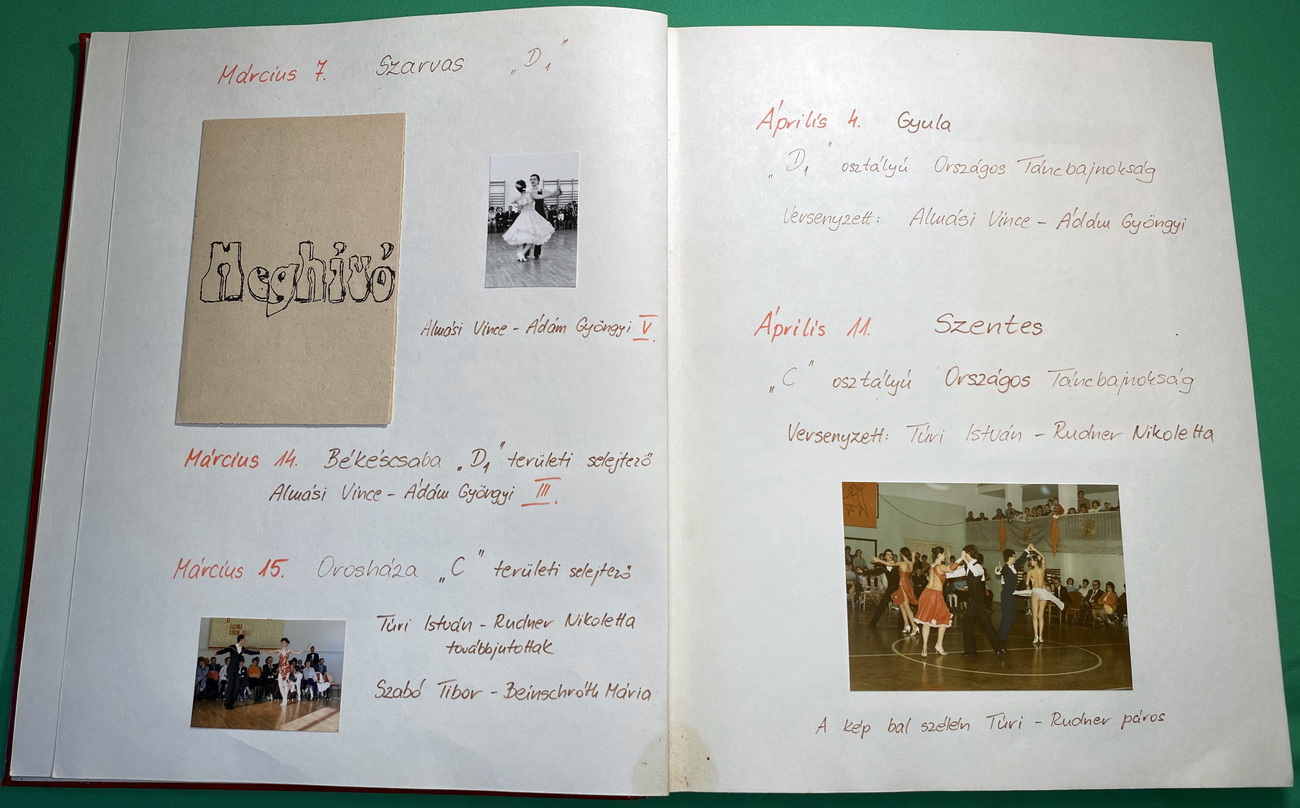 Március 7. Szarvas „D1”
Meghívó
Almási Vince - Ádám Gyöngyi V.
Március 14. Békéscsaba „D1” területi selejtező
Almási Vince - Ádám Gyöngyi III.
Március 15. Orosháza „C” területi selejtező
Túri István - Rudner Nikoletta
továbbjutottak
Szabó Tibor - Beinschróth Mária
Április 4. Gyula
„D1” osztályú Országos Táncbajnokság
Versenyzett: Almási Vince - Ádám Gyöngyi
Április 11. Szentes
„C” osztályú Országos Táncbajnokság
Versenyzett: Túri István - Rudner Nikoletta
A kép bal szélén Túri - Rudner páros